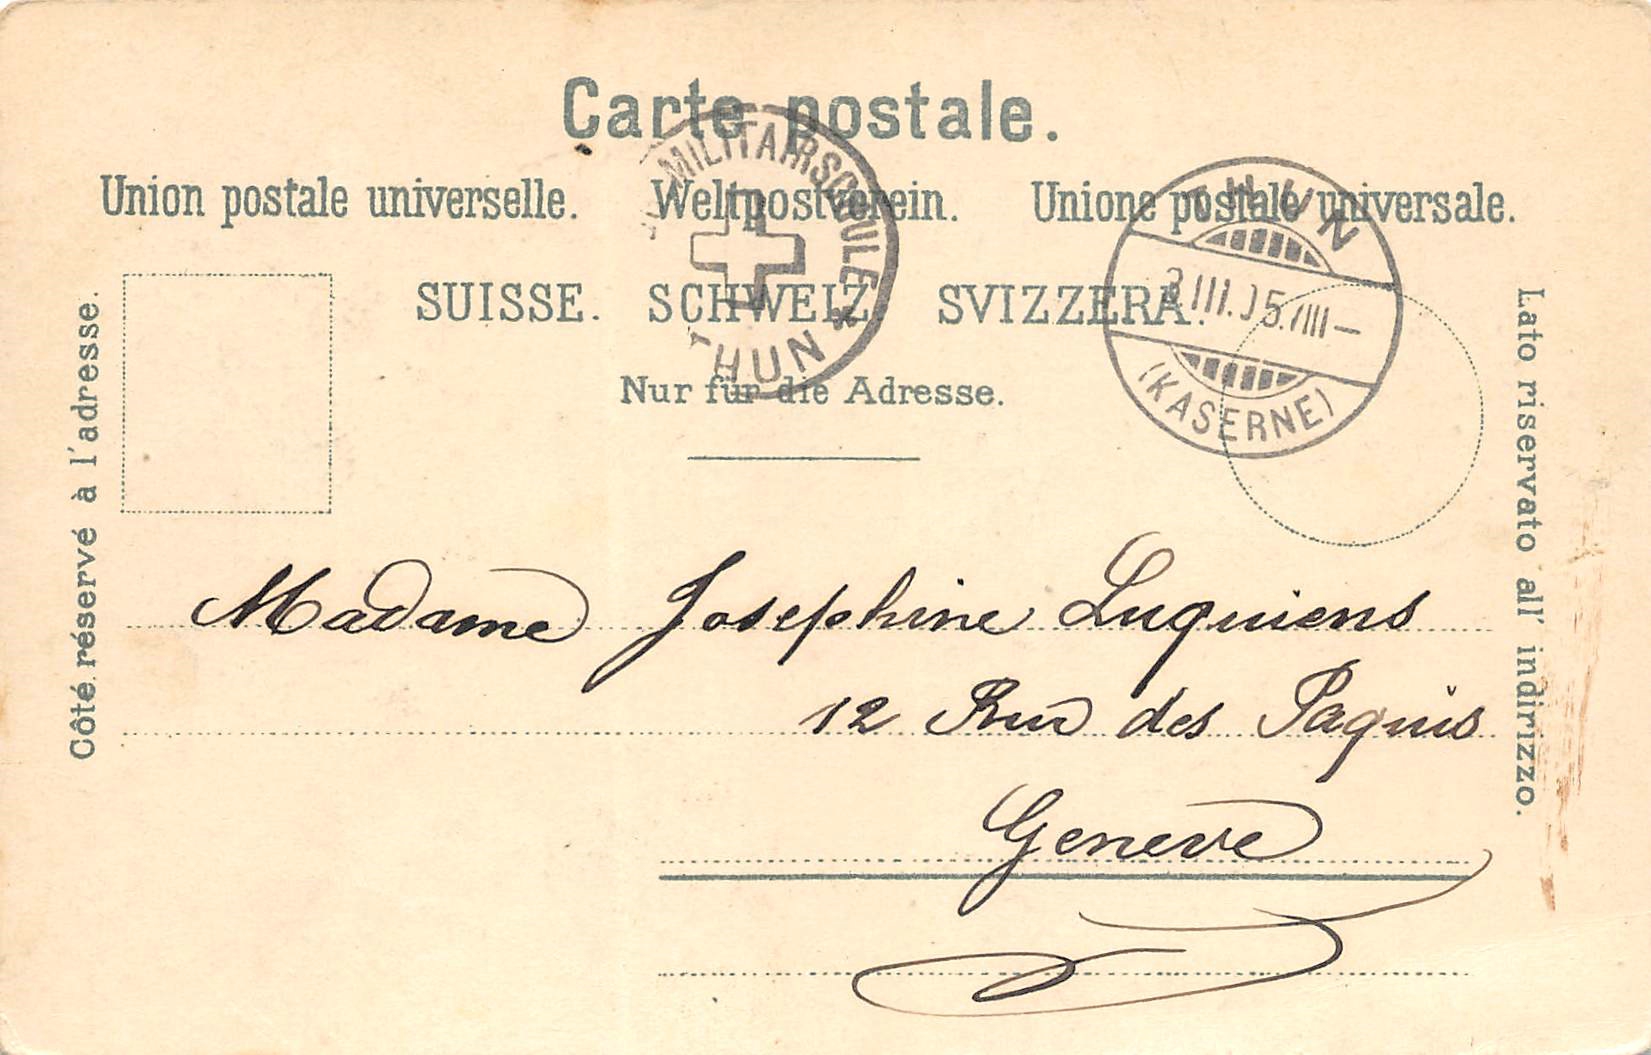 Carte postale.
Union postale universelle. Weltpostverein. Unione postale universale.
SUISSE. SCHWEIZ. SVIZZERA.
Nur für die Adresse.
Côté réservé à l'adresse.
Lato riservato all' indirizzo.
MILITAIRSCHULE *
THUN
THUN
III.05.
(KASERNE)
Madame Josephine Luquiens
12 Rue des Paquis
Geneve